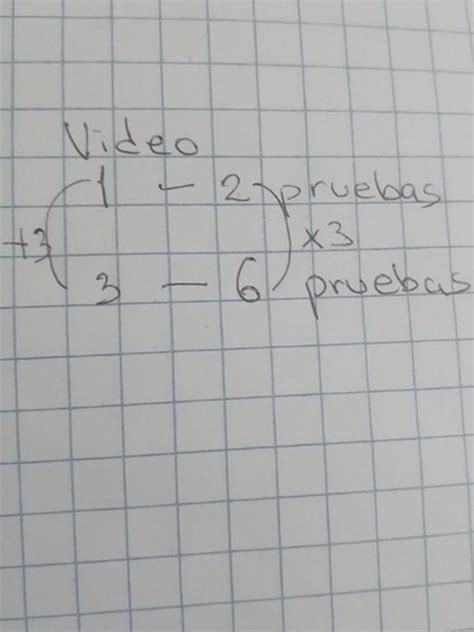 Video
1 - 2 pruebas
+3 x3
3 - 6 pruebas